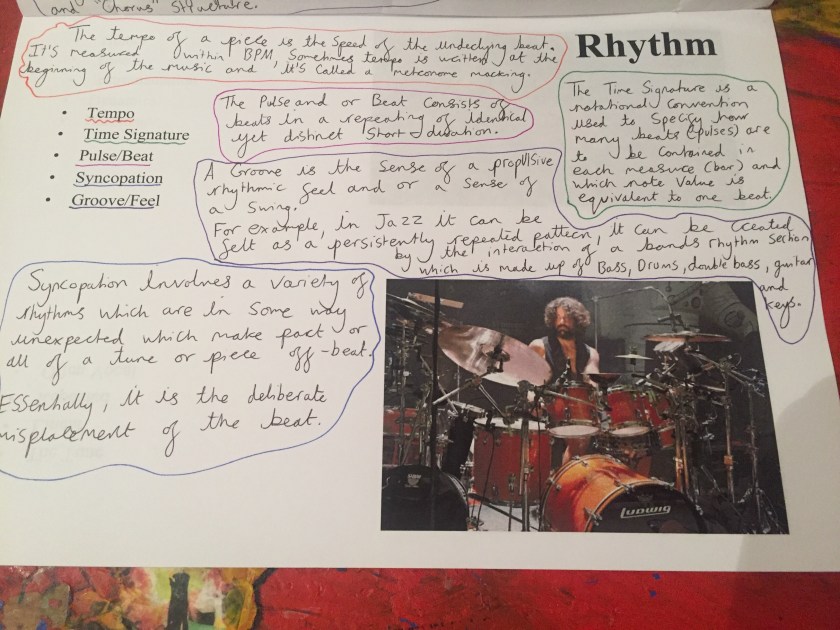 and "Chorus" Structure.
Rhythm
The tempo of a piece is the speed of the underlying beat.
It's measured within BPM, Sometimes tempo is written at the
beginning of the music and it's called a metronome marking.
• Tempo
• Time Signature
• Pulse/Beat
• Syncopation
• Groove/Feel
The Pulse and or Beat Consists of
beats in a repeating of identical
yet distinct Short duration.
The Time Signature is a
notational Convention
used to Specify how
many beats (pulses) are
to be Contained in
each measure (bar) and
which note Value is
equivalent to one beat.
A Groove is the Sense of a propulsive
rhythmic feel and or a Sense of
a Swing.
For example, in Jazz it can be
felt as a persistently repeated pattern, it can be created
by the interaction of a bands rhythm Section
which is made up of Bass, Drums, double bass, guitar
and
keys.
Syncopation Involves a variety of
rhythms which are in Some way
unexpected which make part or
all of a tune or piece off-beat.
Essentially, it is the deliberate
misplacement of the beat.
Ludwig